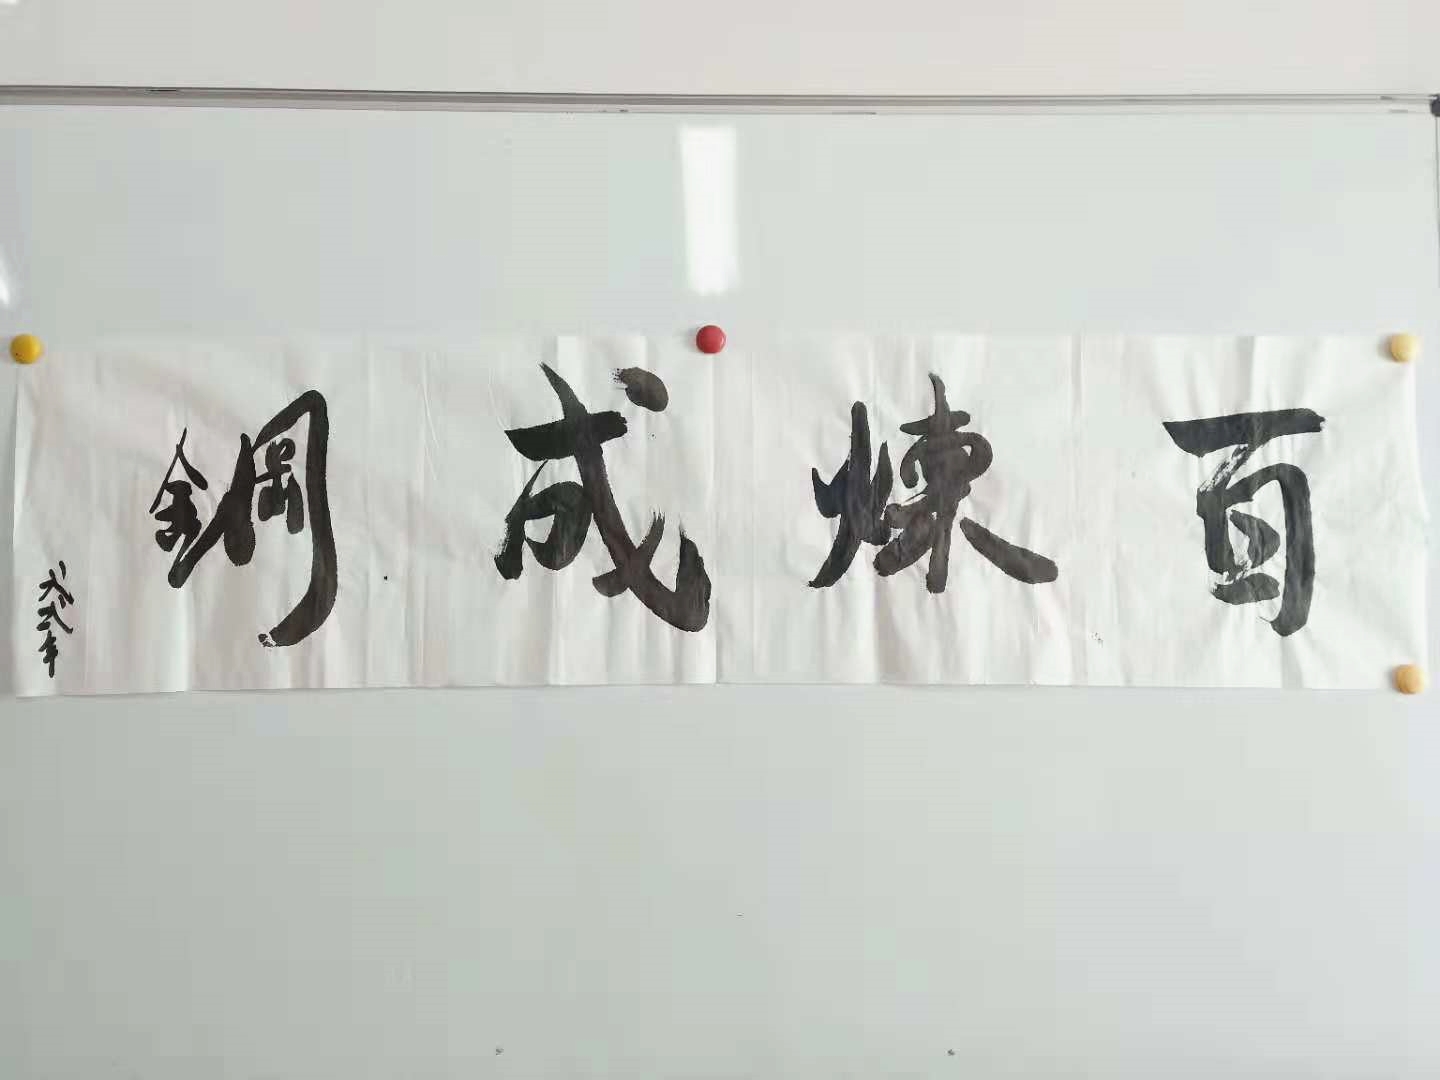 百煉成鋼